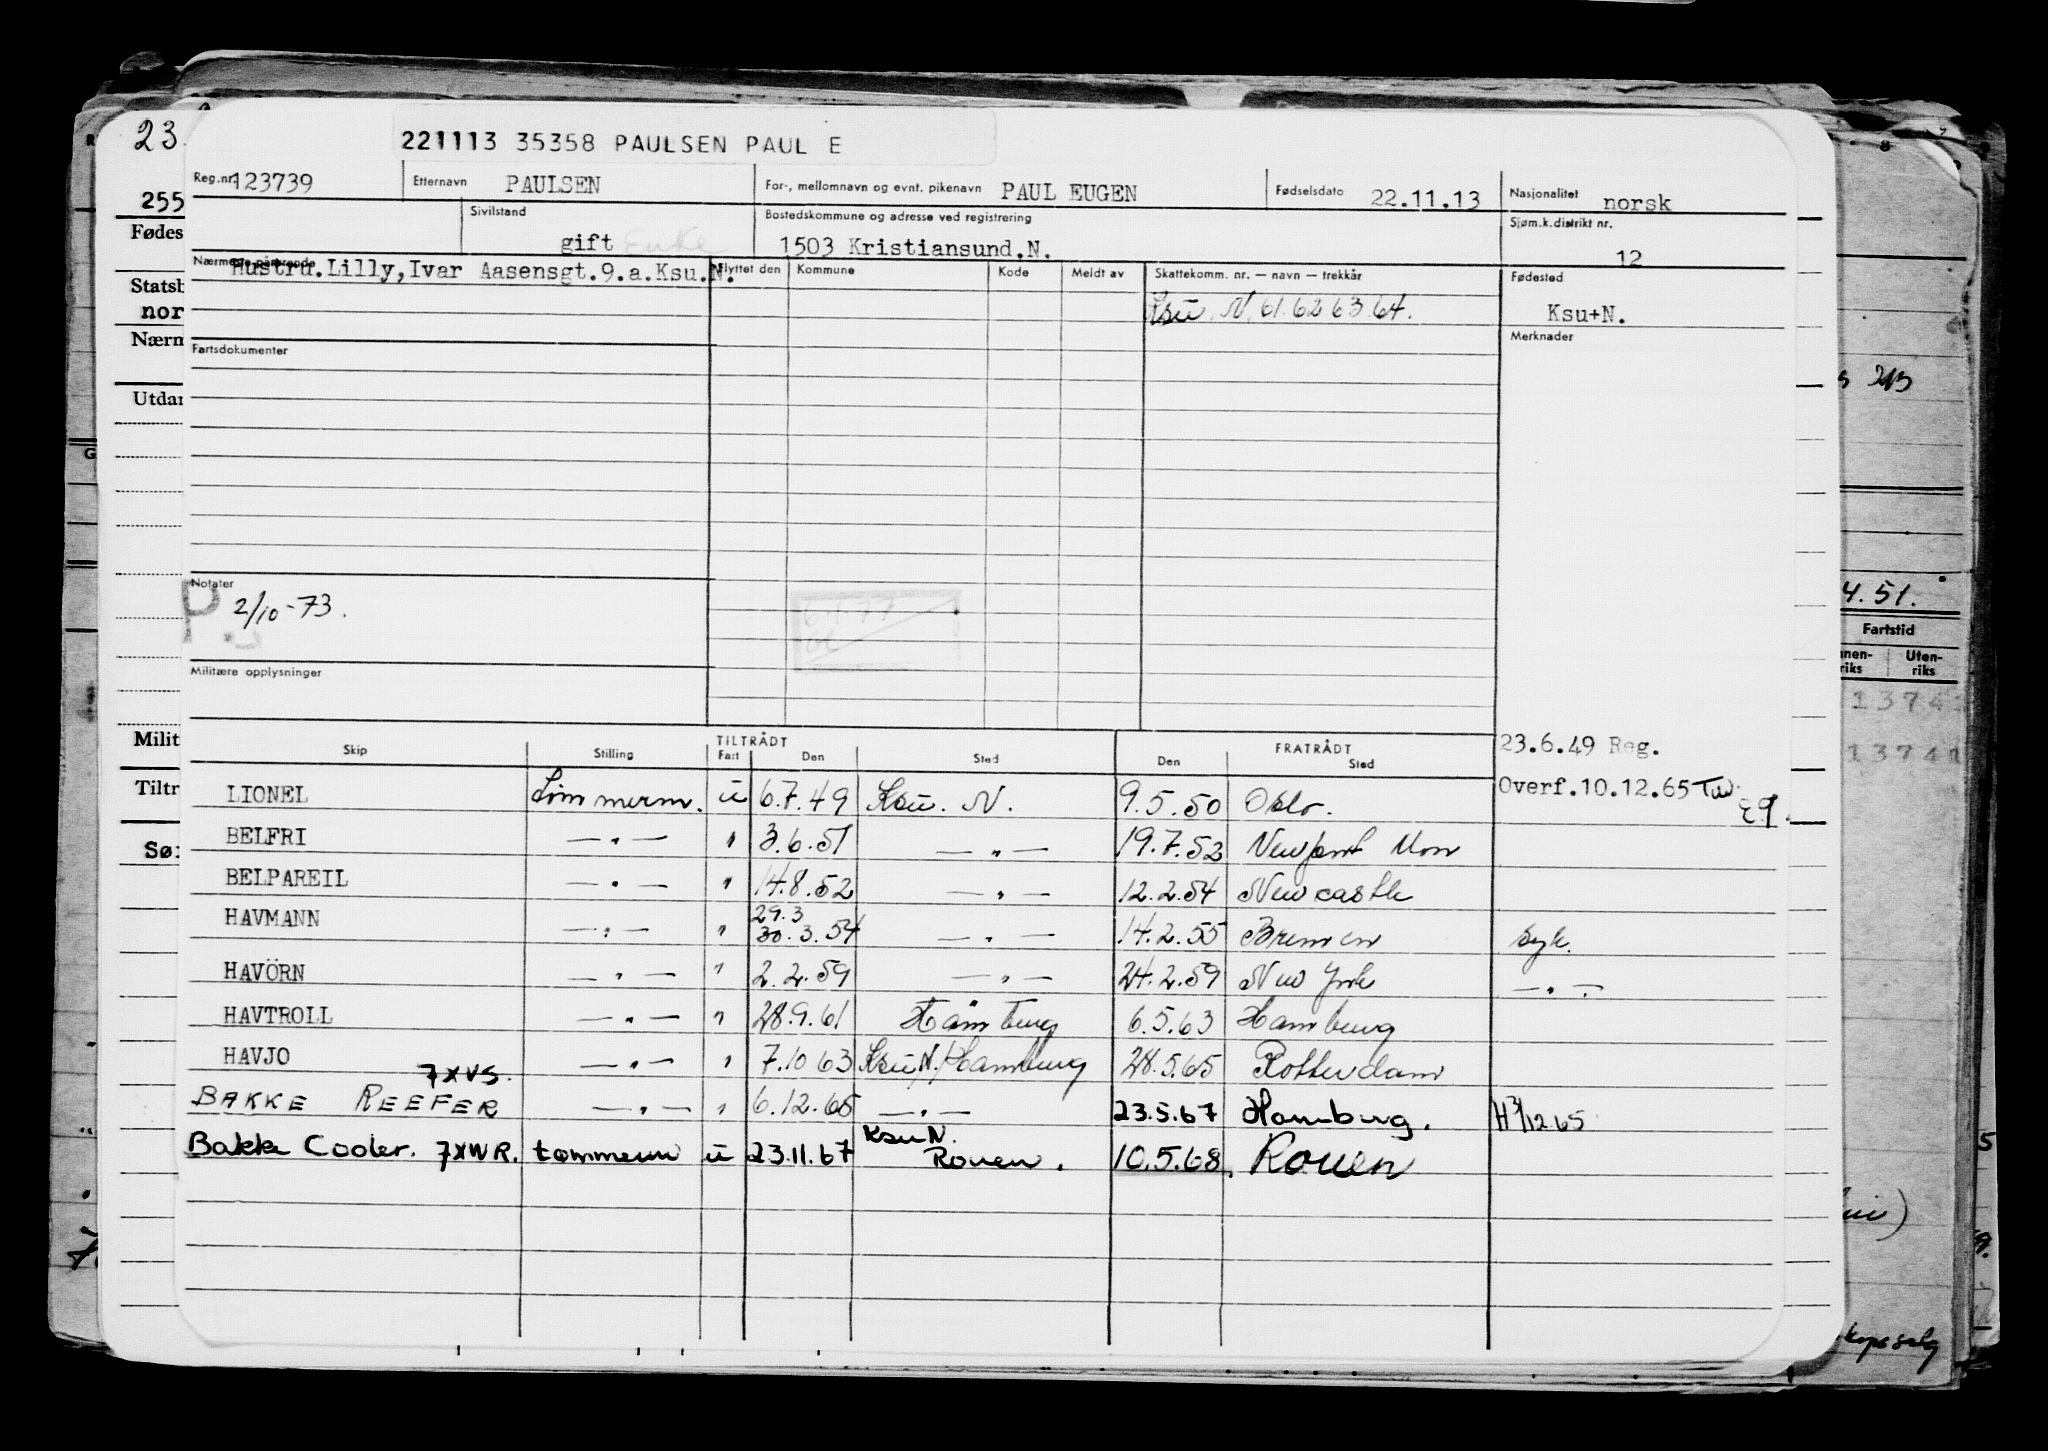 23.
221113 35358 PAULSEN PAUL E
Reg.nr. 123739 Etternavn PAULSEN For-, mellomnavn og evnt. pikenavn PAUL EUGEN Fødselsdato 22.11.13 Nasjonalitet norsk
255
Fødes
Sivilstand gift Enke Bostedskommune og adresse ved registrering 1503 Kristiansund.N. Sjøm.k.distrikt nr. 12
Nærmeste pårørende Hustru.Lilly,Ivar Aasensgt.9.a.Ksu.N. Flyttet den Kommune Kode Meldt av Skattekomm. nr. — navn — trekkår Fødested
Statsb
nor
Ksu. N. 61.62 63.64. Ksu+N.
Nærn
Fartsdokumenter Merknader
Utdan
Notater
P. 2/10-73.
6.1 77
4.51.
Fartstid
nnen-riks Uten-riks
13741
13741
Militære opplysninger
Milit
Tiltr
Sø:
Skip Stilling TILTRÅDT Fart Den Sted FRATRÅDT Den Sted 23.6.49 Reg.
Overf.10.12.65
LIONEL Tømmerm. u 6.7.49 Ksu. N. 9.5.50 Oslo.
BELFRI —„— " 3.6.51 —„— 19.7.52 Newport Mon
BELPAREIL —„— " 14.8.52 —„— 12.2.54 Newcastle
HAVMANN —„— " 29.3 30.3.54 —„— 14.2.55 Bremen syk.
HAVÖRN —„— " 2.2.59 —„— 24.2.59 New York —„—
HAVTROLL —„— " 28.9.61 Hamburg 6.5.63 Hamburg
HAVJO —„— " 7.10 63 Ksu N./Hamburg 28.5.65 Rotterdam
BAKKE REEFER 7XVS. —„— " 6.12.65 —„— 23.5.67 Hamburg. H 3/12 65
Bakke Cooler. 7XWR. tømmerm u 23.11.67 Ksu N. Rouen. 10.5.68. Rouen